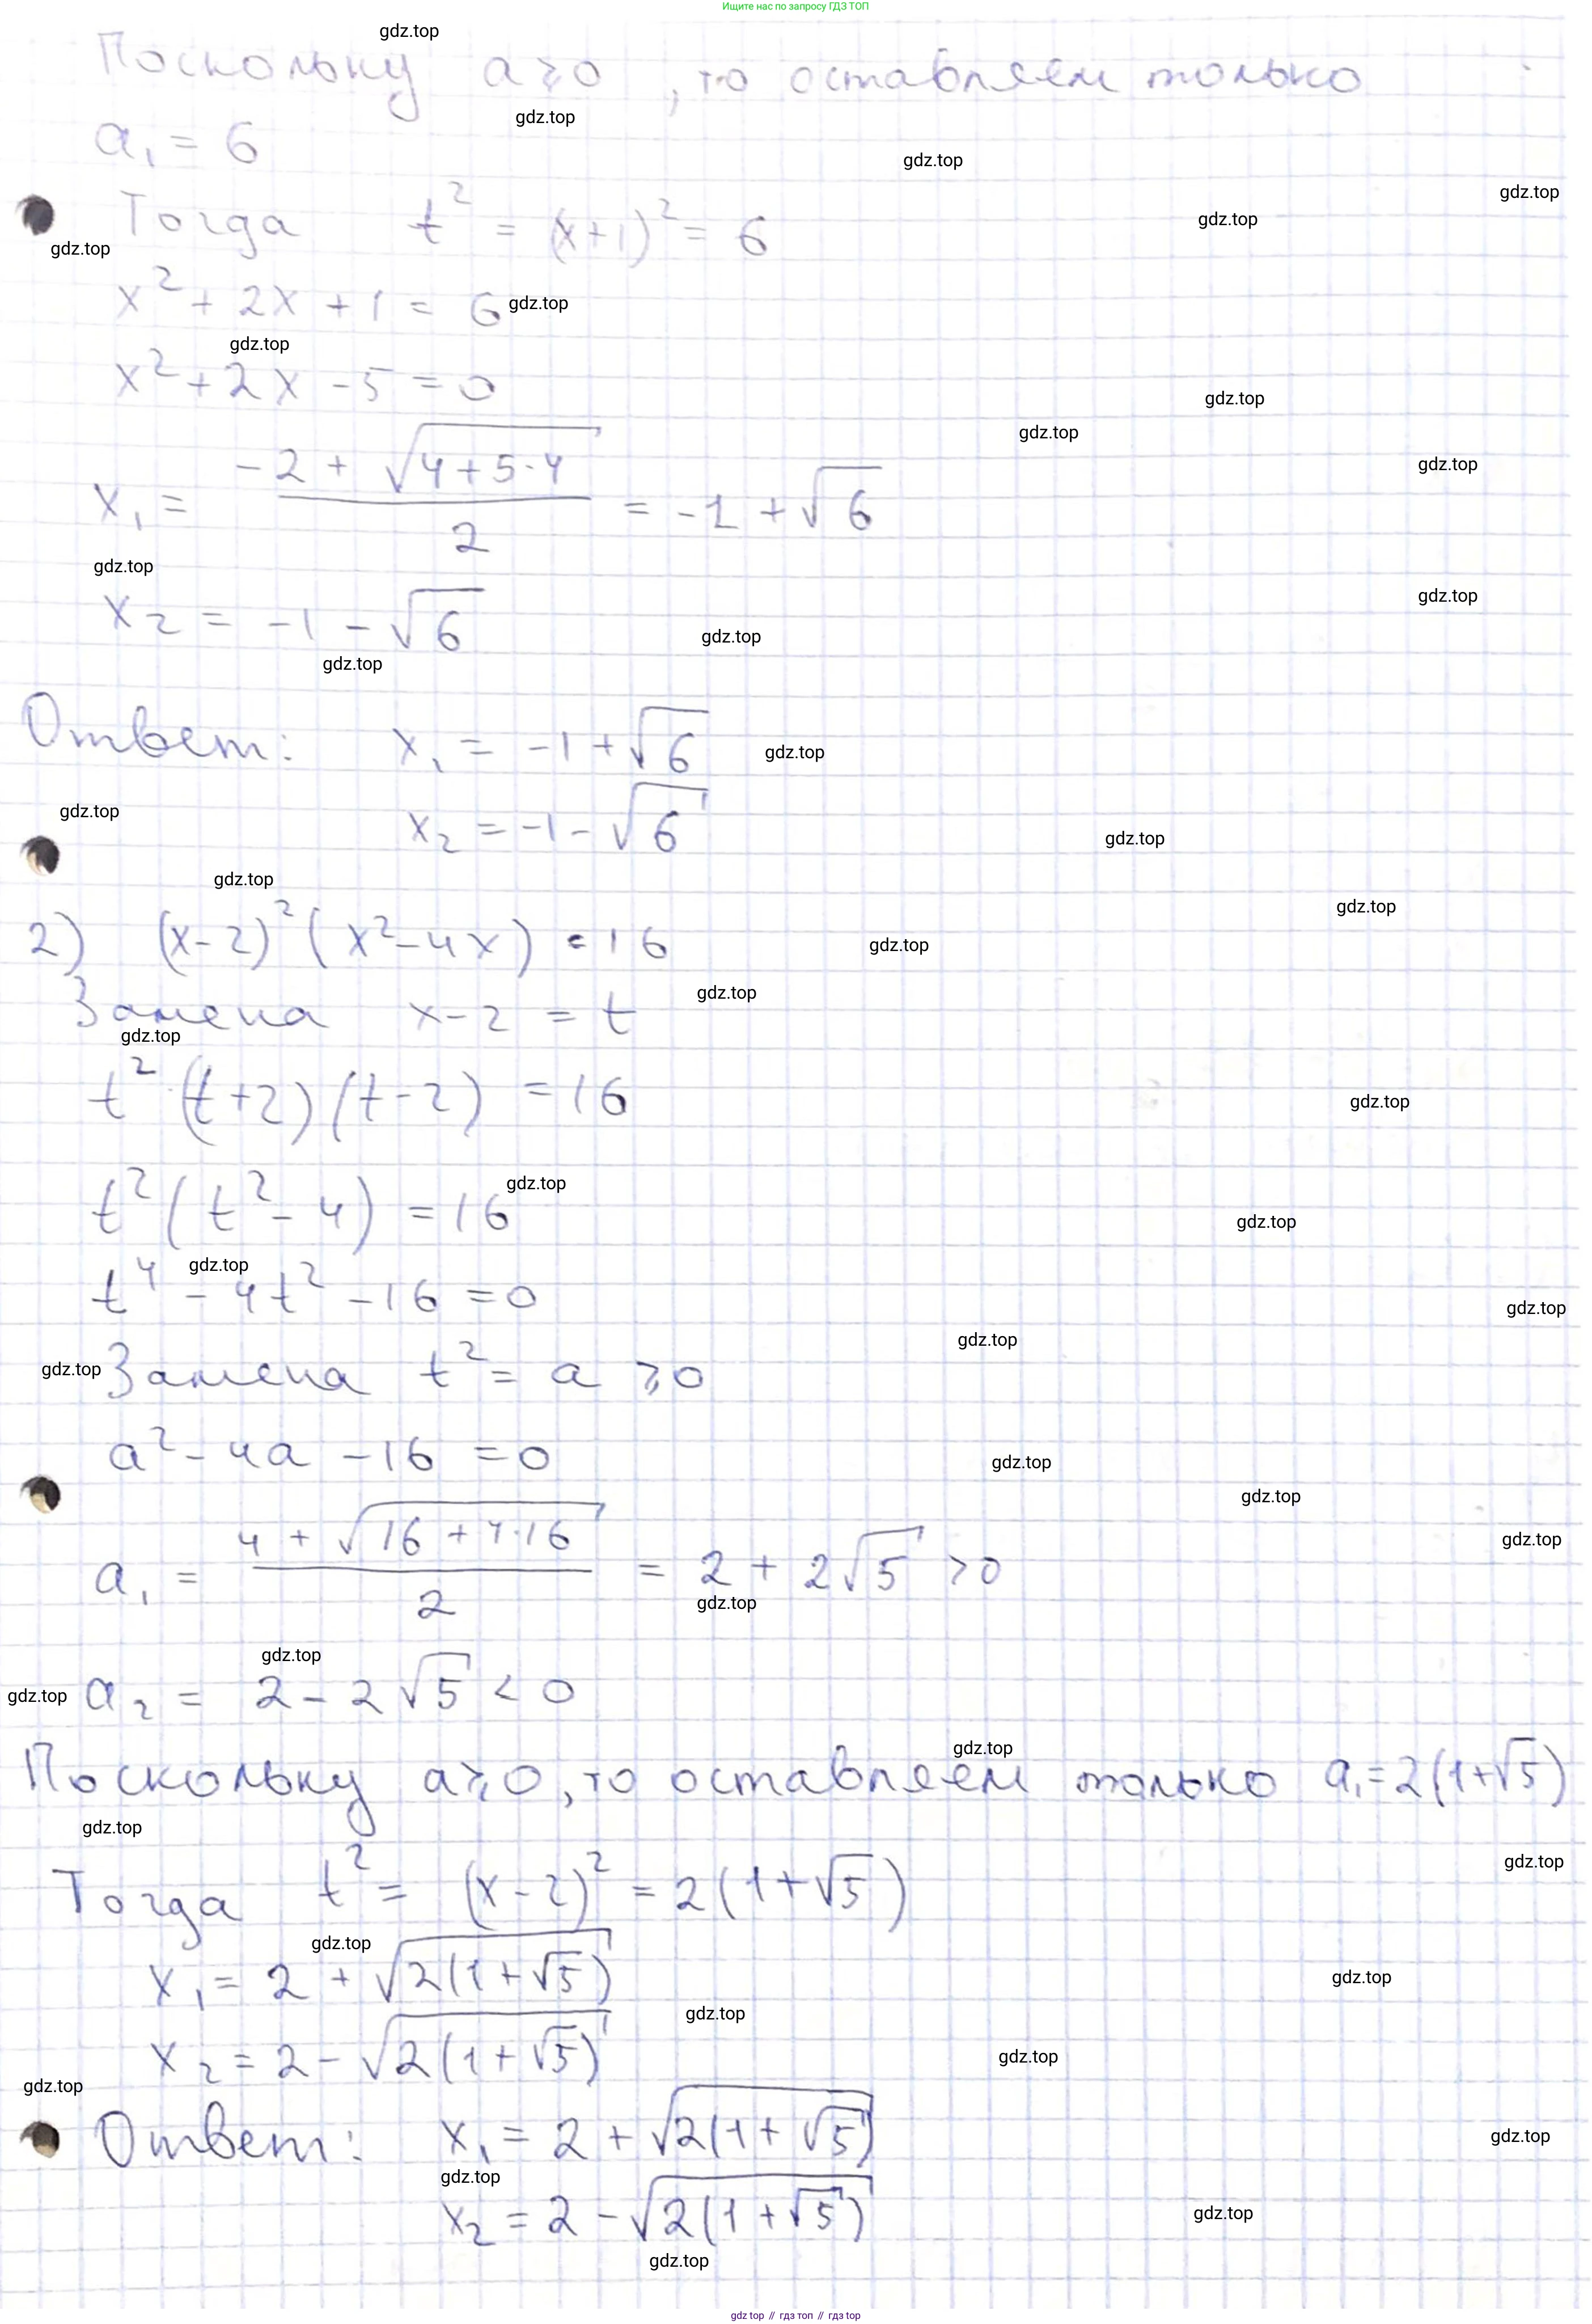 Ищите нас по запросу ГДЗ ТОП
Поскольку a ⩾ 0, то оставляем только
a₁ = 6
Тогда t² = (x+1)² = 6
x² + 2x + 1 = 6
x² + 2x - 5 = 0
x₁ = (-2 + √(4+5·4))/2 = -1 + √6
x₂ = -1 - √6
Ответ: x₁ = -1 + √6
x₂ = -1 - √6
2) (x-2)² (x² - 4x) = 16
Замена x - 2 = t
t² · (t+2)(t-2) = 16
t² (t² - 4) = 16
t⁴ - 4t² - 16 = 0
Замена t² = a ⩾ 0
a² - 4a - 16 = 0
a₁ = (4 + √(16 + 4·16))/2 = 2 + 2√5 > 0
a₂ = 2 - 2√5 < 0
Поскольку a ⩾ 0, то оставляем только a₁ = 2(1+√5)
Тогда t² = (x-2)² = 2(1+√5)
x₁ = 2 + √(2(1+√5))
x₂ = 2 - √(2(1+√5))
Ответ: x₁ = 2 + √(2(1+√5))
x₂ = 2 - √(2(1+√5))
gdz.top // гдз топ // gdz.top